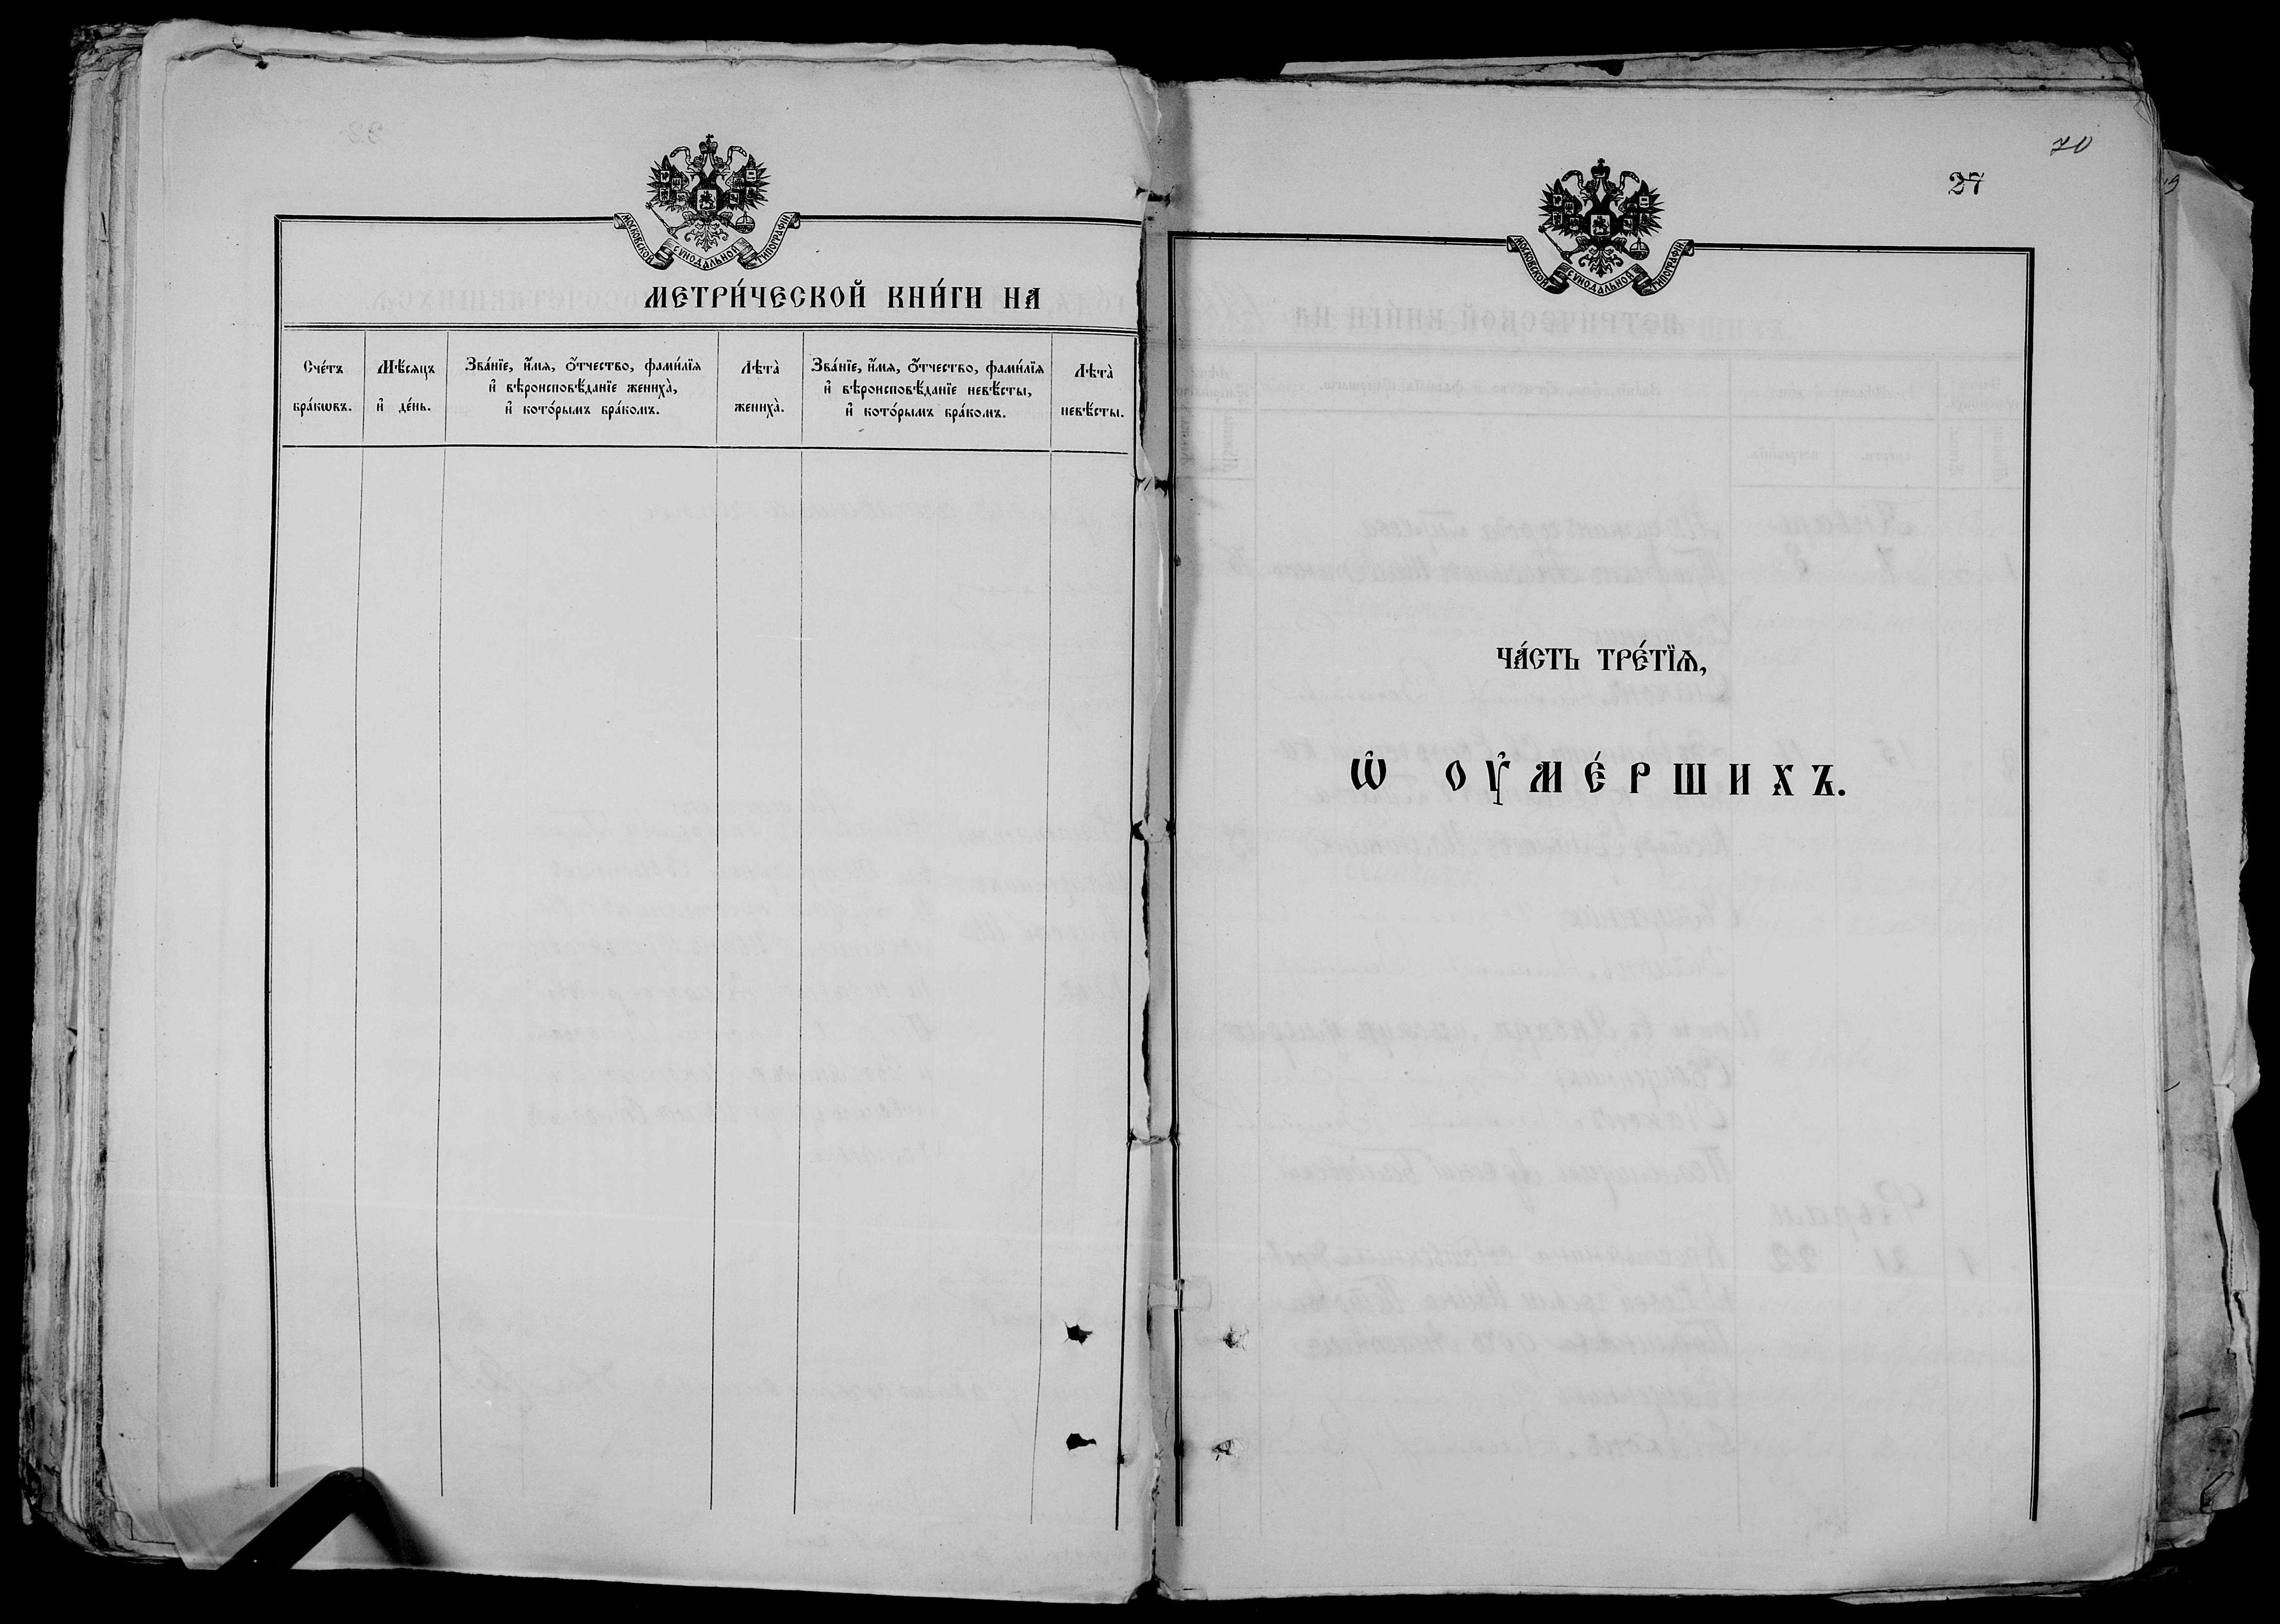 МОСКОВСКОЙ СѴНОДАЛЬНОЙ ТИПОГРАФІИ
МЕТРИ́ЧЕСКОЙ КНИ́ГИ НА
Сче́тъ
бра́кѡвъ.
Мѣ́сяцъ
и҆ де́нь.
Зва́нїе, и҆́мя, о҆́тчество, фами́лїя
и҆ вѣроисповѣ́данїе жениха̀,
и҆ кото́рымъ бра́комъ.
Лѣ́та̀
жениха̀.
Зва́нїе, и҆́мя, о҆́тчество, фами́лїя
и҆ вѣроисповѣ́данїе невѣ́сты,
и҆ кото́рымъ бра́комъ.
Лѣ́та̀
невѣ́сты.
70
27
МОСКОВСКОЙ СѴНОДАЛЬНОЙ ТИПОГРАФІИ
ЧА́СТЬ ТРЕ́ТЇѦ,
Ѡ҆ ОУ҆МЕ́РШИХЪ.